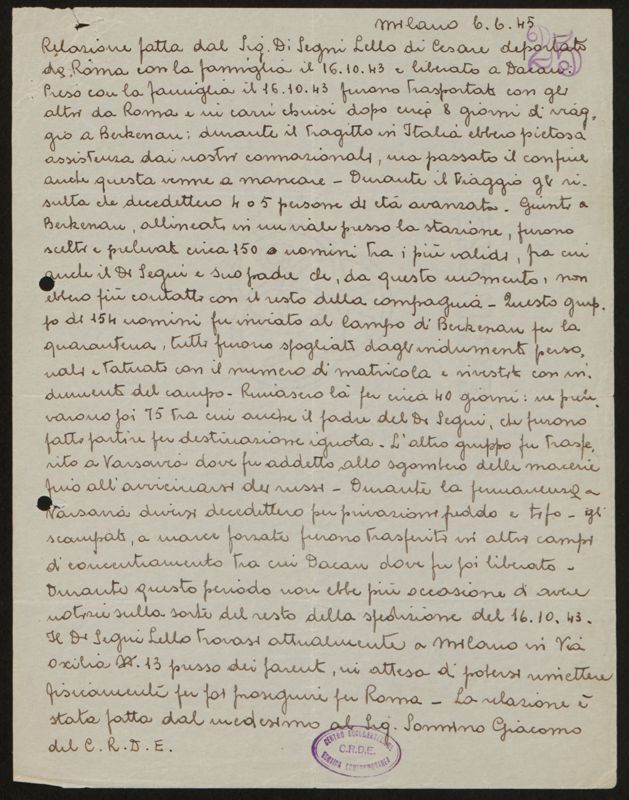 Milano 6.6.45
25
Relazione fatta dal Sig. Di Segni Lello di Cesare deportato
da Roma con la famiglia il 16.10.43 e liberato a Dacau.
Preso con la famiglia il 16.10.43 furono trasportati con gli
altri da Roma e in carri chiusi dopo circa 8 giorni di viag-
gio a Berkenau: durante il tragitto in Italia ebbero pietosa
assistenza dai nostri connazionali, ma passato il confine
anche questa venne a mancare - Durante il viaggio gli ri-
sulta che decedettero 4 o 5 persone di età avanzata. Giunti a
Berkenau, allineati in un viale presso la stazione, furono
scelti e prelevati circa 150 uomini tra i più validi, fra cui
anche il Di Segni e suo padre che, da questo momento, non
ebbero più contatti con il resto della compagnia - Questo grup-
po di 154 uomini fu inviato al Campo di Berkenau per la
quarantena, tutti furono spogliati dagli indumenti perso-
nali e tatuati con il numero di matricola e rivestiti con in-
dumenti del campo - Rimasero là per circa 40 giorni: ne prele-
varono poi 75 tra cui anche il padre del Di Segni, che furono
fatti partire per destinazione ignota - L'altro gruppo fu trasfe-
rito a Varsavia dove fu addetto allo sgombero delle macerie
fino all'avvicinarsi dei russi - Durante la permanenza a
Varsavia diversi decedettero per privazioni freddo e tifo - gli
scampati, a marce forzate furono trasferiti in altri campi
di concentramento tra cui Dacau dove fu poi liberato -
Durante questo periodo non ebbe più occasione di avere
notizie sulla sorte del resto della spedizione del 16.10.43.
Il Di Segni Lello trovasi attualmente a Milano in Via
Oxilia N. 13 presso dei parenti, in attesa di potersi rimettere
fisicamente per poi proseguire per Roma - La relazione è
stata fatta dal medesimo al Sig. Sonnino Giacomo
del C.R.D.E.
C.R.D.E.